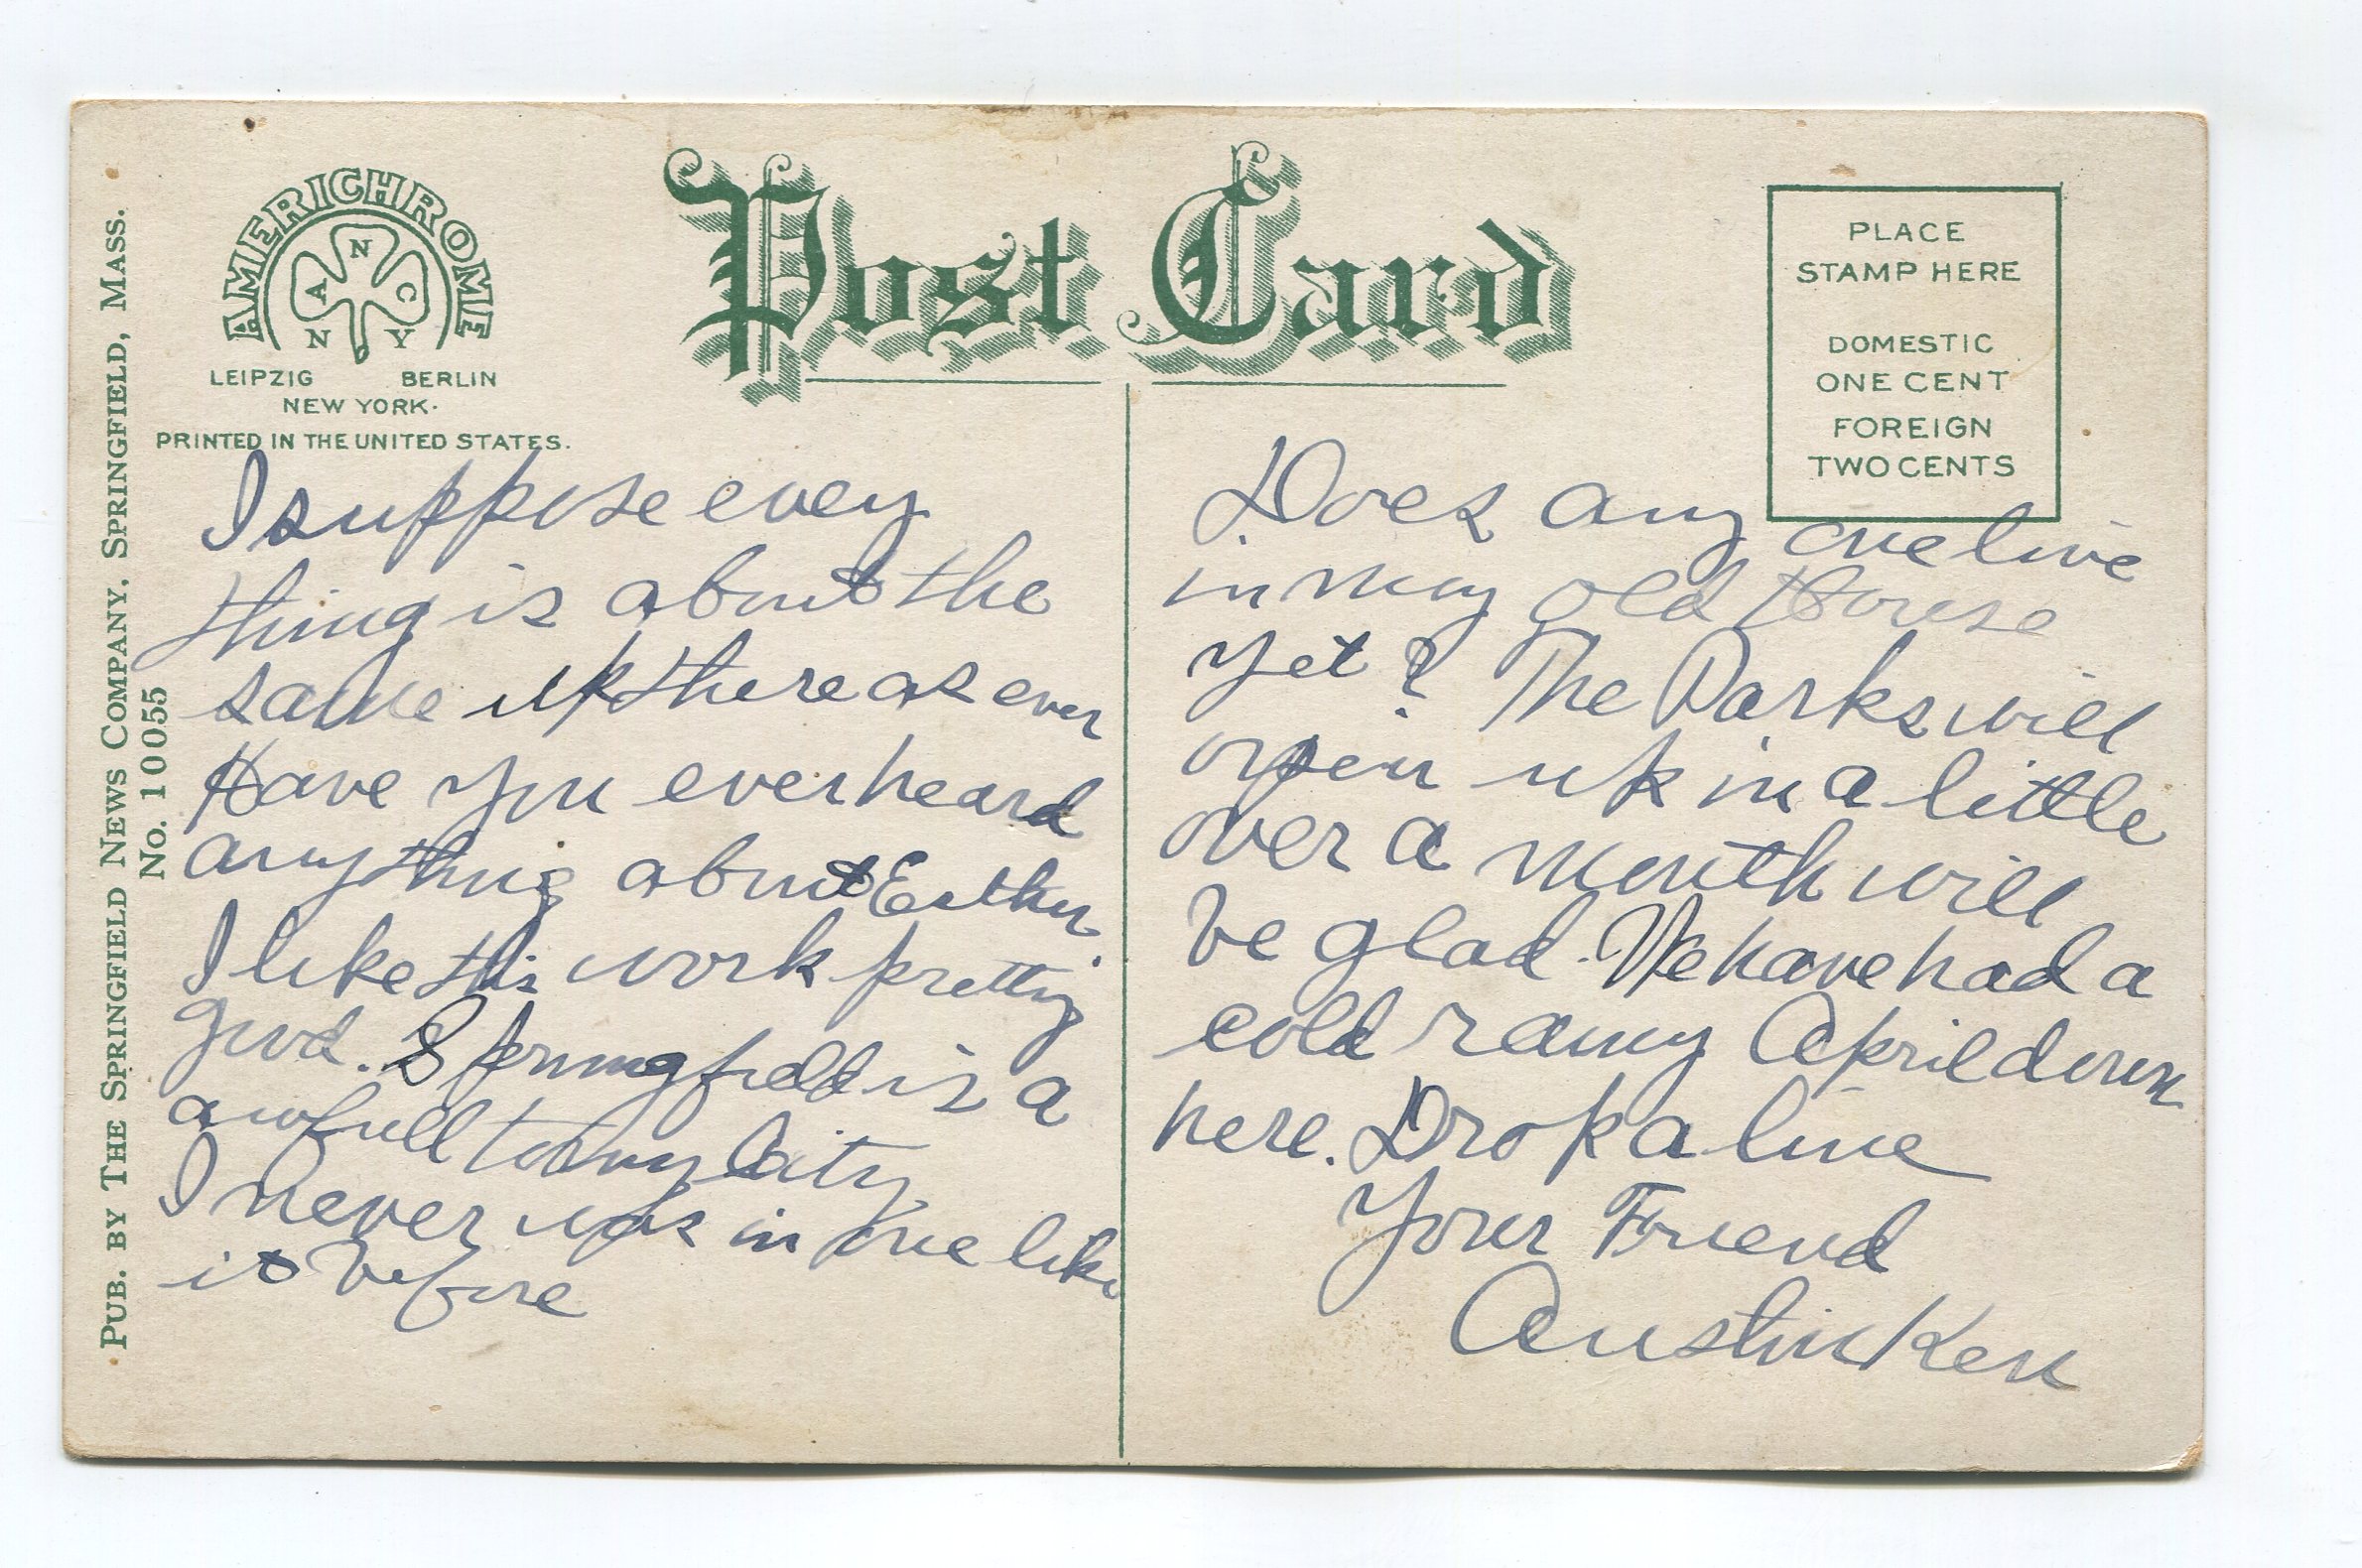 PUB. BY THE SPRINGFIELD NEWS COMPANY, SPRINGFIELD, MASS.
No. 10055
AMERICHROME
A N C
N Y
LEIPZIG BERLIN
NEW YORK.
PRINTED IN THE UNITED STATES.
Post Card
PLACE
STAMP HERE
DOMESTIC
ONE CENT
FOREIGN
TWO CENTS
I suppose every
thing is about the
same up there as ever
Have you ever heard
anything about Esther
I like this work pretty
good. Springfield is a
awfull city
I never was in one like
it before
Does any one live
in my old House
yet? The Parks will
open up in a little
over a month will
be glad. We have had a
cold rainy April down
here. Drop a line
Your Friend
Austin Ken